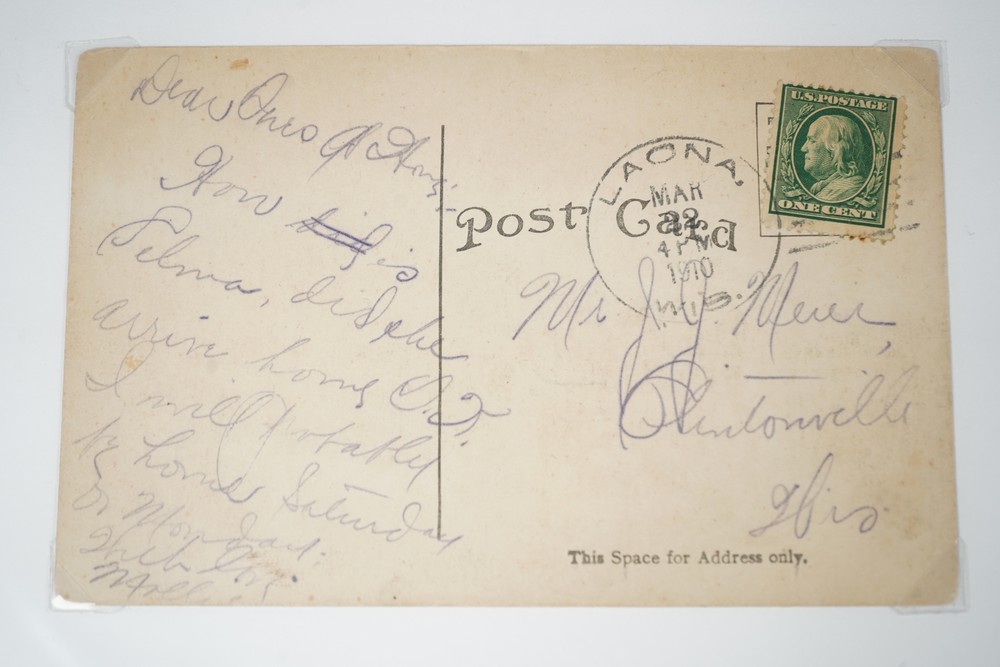 Dear Ones At Home:-
How is
Selma, did she
arrive home O.K.
I will probably
be home Saturday
or Monday.
With love
Mollie
Post Card
LAONA,
MAR
22
4 PM
1910
WIS.
U.S.POSTAGE
ONE CENT
Mr J.J. Meier,
Clintonville
Wis.
This Space for Address only.